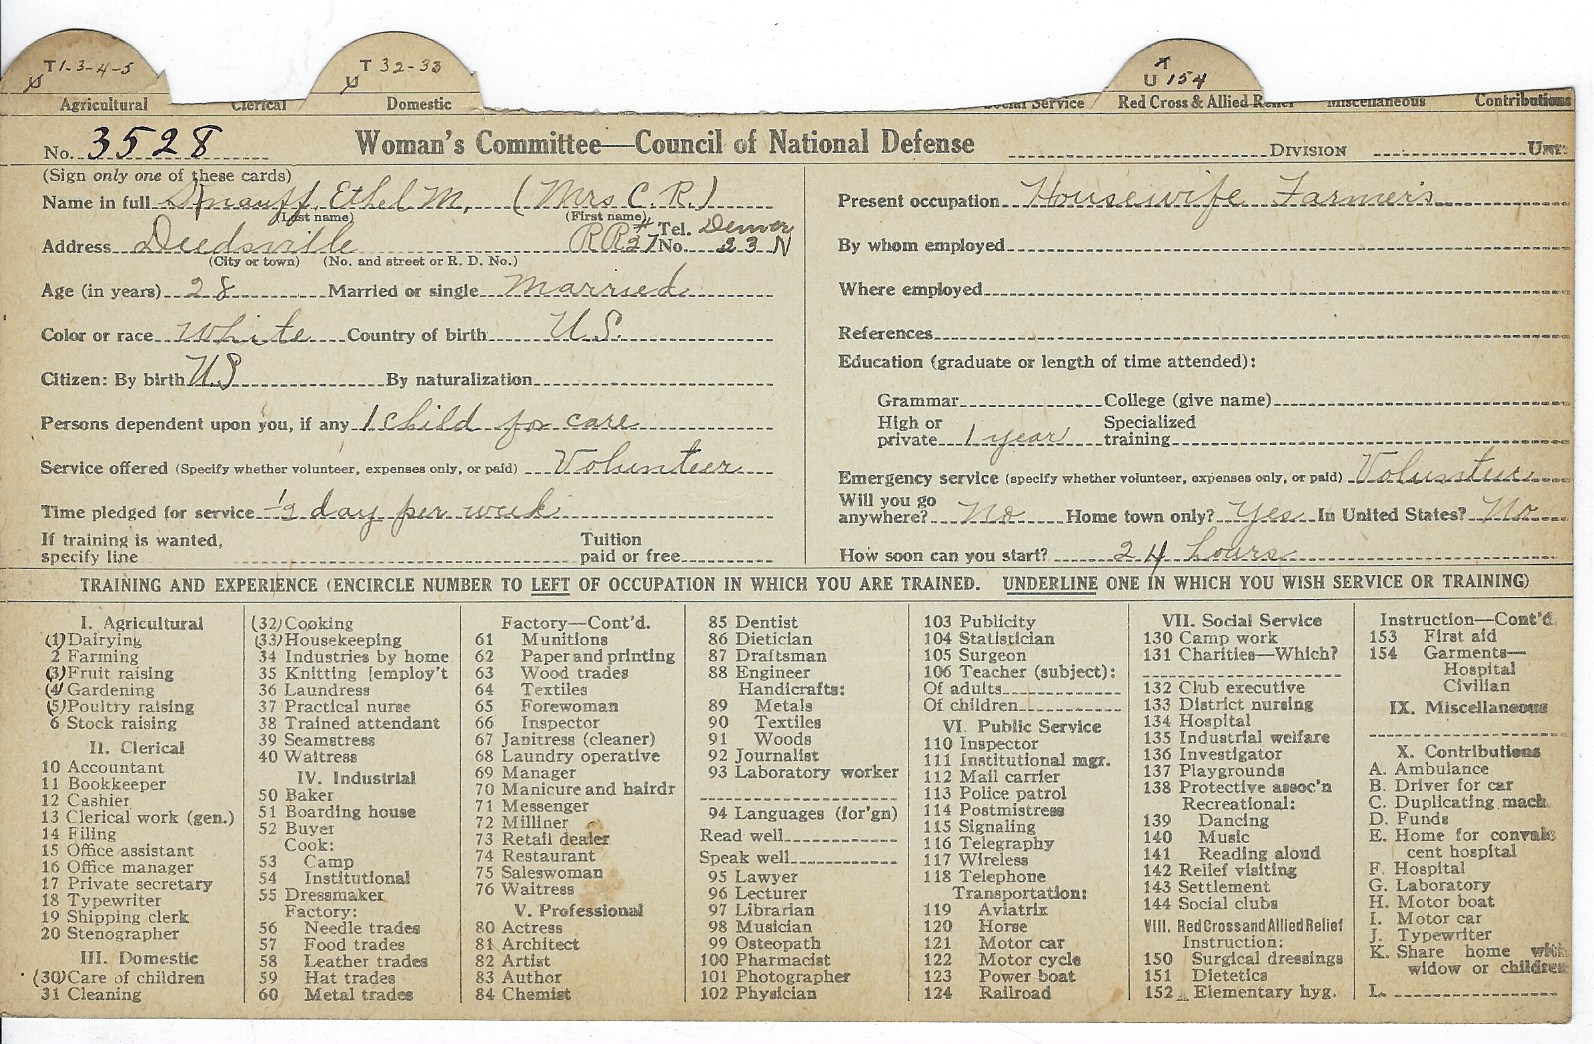 T 1-3-4-5
U
T 32-33
U
T
U 154
Agricultural Clerical Domestic Social Service Red Cross & Allied Relief Miscellaneous Contributions
No. 3528 Woman's Committee—Council of National Defense DIVISION UNIT
(Sign only one of these cards)
Name in full Ethel M. (Mrs C. R.)
(Last name) (First name)
Address Deedsville RR# 27 Tel. No. Denver 23 N
(City or town) (No. and street or R. D. No.)
Age (in years) 28 Married or single Married
Color or race White Country of birth U.S.
Citizen: By birth US By naturalization
Persons dependent upon you, if any 1 child for care
Service offered (Specify whether volunteer, expenses only, or paid) Volunteer
Time pledged for service 1/2 day per week
If training is wanted, specify line Tuition paid or free
Present occupation Housewife Farmer's
By whom employed
Where employed
References
Education (graduate or length of time attended):
Grammar College (give name)
High or private 1 year Specialized training
Emergency service (specify whether volunteer, expenses only, or paid) Volunteer
Will you go anywhere? No Home town only? Yes In United States? No
How soon can you start? 24 hours
TRAINING AND EXPERIENCE (ENCIRCLE NUMBER TO LEFT OF OCCUPATION IN WHICH YOU ARE TRAINED. UNDERLINE ONE IN WHICH YOU WISH SERVICE OR TRAINING)
I. Agricultural
(1) Dairying
2 Farming
(3) Fruit raising
(4) Gardening
(5) Poultry raising
6 Stock raising
II. Clerical
10 Accountant
11 Bookkeeper
12 Cashier
13 Clerical work (gen.)
14 Filing
15 Office assistant
16 Office manager
17 Private secretary
18 Typewriter
19 Shipping clerk
20 Stenographer
III. Domestic
(30) Care of children
31 Cleaning
(32) Cooking
(33) Housekeeping
34 Industries by home
35 Knitting [employ't
36 Laundress
37 Practical nurse
38 Trained attendant
39 Seamstress
40 Waitress
IV. Industrial
50 Baker
51 Boarding house
52 Buyer
Cook:
53 Camp
54 Institutional
55 Dressmaker
Factory:
56 Needle trades
57 Food trades
58 Leather trades
59 Hat trades
60 Metal trades
Factory—Cont'd.
61 Munitions
62 Paper and printing
63 Wood trades
64 Textiles
65 Forewoman
66 Inspector
67 Janitress (cleaner)
68 Laundry operative
69 Manager
70 Manicure and hairdr
71 Messenger
72 Milliner
73 Retail dealer
74 Restaurant
75 Saleswoman
76 Waitress
V. Professional
80 Actress
81 Architect
82 Artist
83 Author
84 Chemist
85 Dentist
86 Dietician
87 Draftsman
88 Engineer
Handicrafts:
89 Metals
90 Textiles
91 Woods
92 Journalist
93 Laboratory worker
94 Languages (for'gn)
Read well
Speak well
95 Lawyer
96 Lecturer
97 Librarian
98 Musician
99 Osteopath
100 Pharmacist
101 Photographer
102 Physician
103 Publicity
104 Statistician
105 Surgeon
106 Teacher (subject):
Of adults
Of children
VI. Public Service
110 Inspector
111 Institutional mgr.
112 Mail carrier
113 Police patrol
114 Postmistress
115 Signaling
116 Telegraphy
117 Wireless
118 Telephone
Transportation:
119 Aviatrix
120 Horse
121 Motor car
122 Motor cycle
123 Power boat
124 Railroad
VII. Social Service
130 Camp work
131 Charities—Which?
132 Club executive
133 District nursing
134 Hospital
135 Industrial welfare
136 Investigator
137 Playgrounds
138 Protective assoc'n
Recreational:
139 Dancing
140 Music
141 Reading aloud
142 Relief visiting
143 Settlement
144 Social clubs
VIII. Red Cross and Allied Relief
Instruction:
150 Surgical dressings
151 Dietetics
152 Elementary hyg.
Instruction—Cont'd.
153 First aid
154 Garments—
Hospital
Civilian
IX. Miscellaneous
X. Contributions
A. Ambulance
B. Driver for car
C. Duplicating mach.
D. Funds
E. Home for convales
cent hospital
F. Hospital
G. Laboratory
H. Motor boat
I. Motor car
J. Typewriter
K. Share home with
widow or children
L.